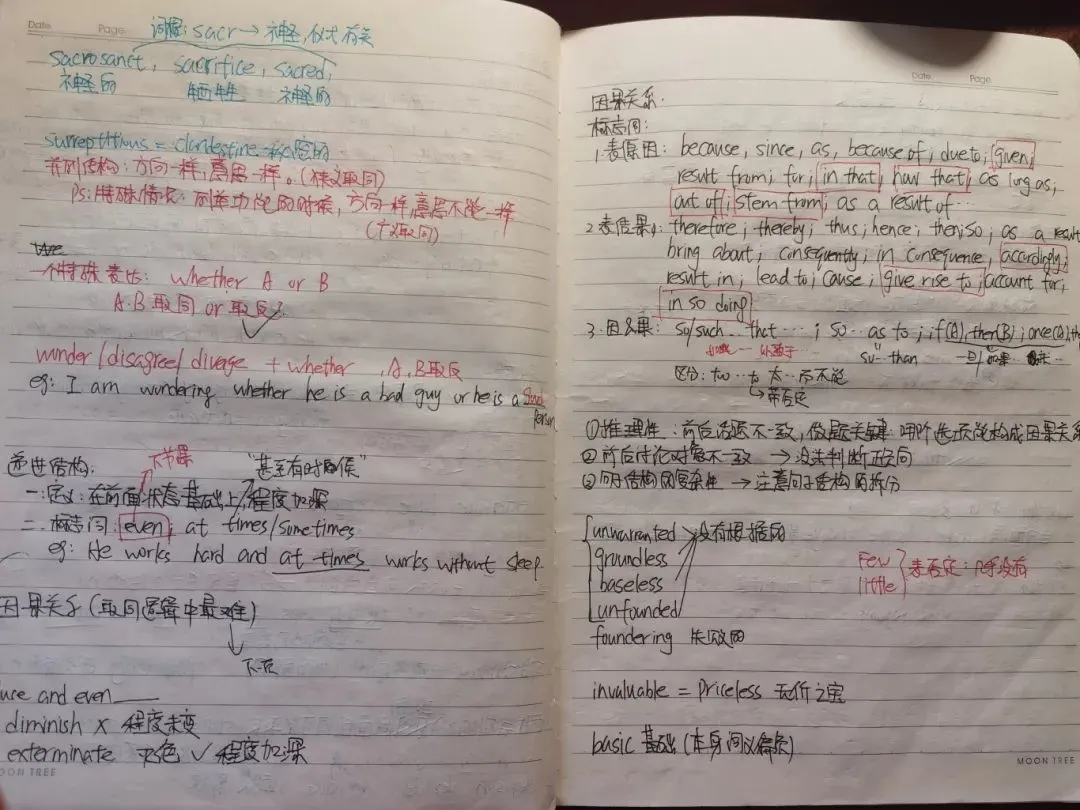 Date. Page.
词根: sacr → 神圣, 仪式有关
sacrosanct, sacrifice, sacred,
神圣的 牺牲 神圣的
surreptitious = clandestine 秘密的
并列结构: 方向一样, 意思一样。(狭义取同)
Ps: 特殊情况: 列举功能的时候, 方向一样意思不能一样
(广义取同)
一个特殊表达: whether A or B
A.B 取同 or 取反?
wonder/disagree/diverge + whether , A, B取反
eg: I am wondering whether he is a bad guy or he is a good
person
递进结构: "甚至有时候"
一.定义: 在前面状态基础上, 程度加深
二. 标志词: even; at times/sometimes
eg: He works hard and at times works without sleep.
因果关系(取同逻辑中最难)
↓
下一页
use and even ____
diminish × 程度未变
exterminate ✓ 程度加深
OON TREE
Date. Page.
因果关系.
标志词:
1, 表原因: because, since, as, because of; due to; given;
result from; for; in that; now that; as long as;
out of; stem from; as a result of…
2 表结果: therefore; thereby; thus; hence; then; so; as a result
bring about; consequently; in consequence, accordingly;
result in; lead to; cause; give rise to; account for;
in so doing
3. 因&果: so/such … that …; so … as to; if(A), then(B); once(A), th
区分: too … to 太…而不能
→ 带否定
①推理性: 前后话题不一致, 做题关键: 哪个选项能构成因果关系
②前后讨论对象不一致 → 没法判断正负向
③句子结构的复杂性 → 注意句子结构的拆分
unwarranted 没有根据的
groundless
baseless
unfounded
few
little 表否定: 几乎没有
foundering 失败的
invaluable = priceless 无价之宝
basic 基础 (本身词义偏负)
MOON TREE